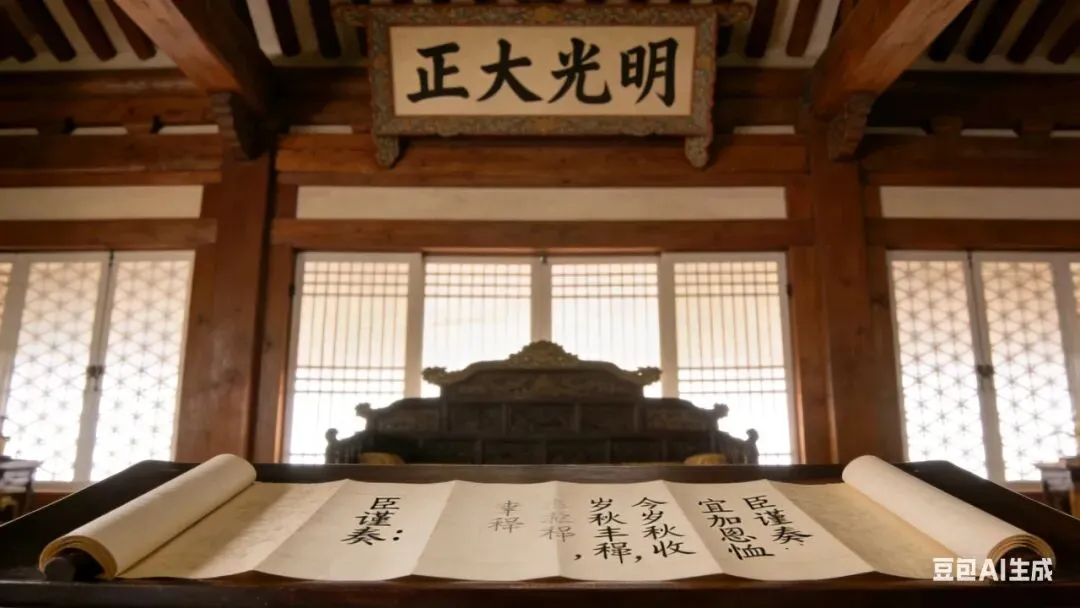 正大光明
臣谨奏：
宜加恩恤
今岁秋收
岁秋丰稺，
臣谨奏：
豆包AI生成